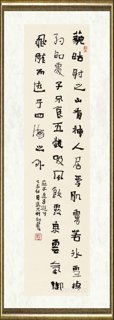 藐姑射之山有神人居焉肌膚若冰雪綽
約如處子不食五穀吸風飲露乘雲氣御
飛龍而遊乎四海之外